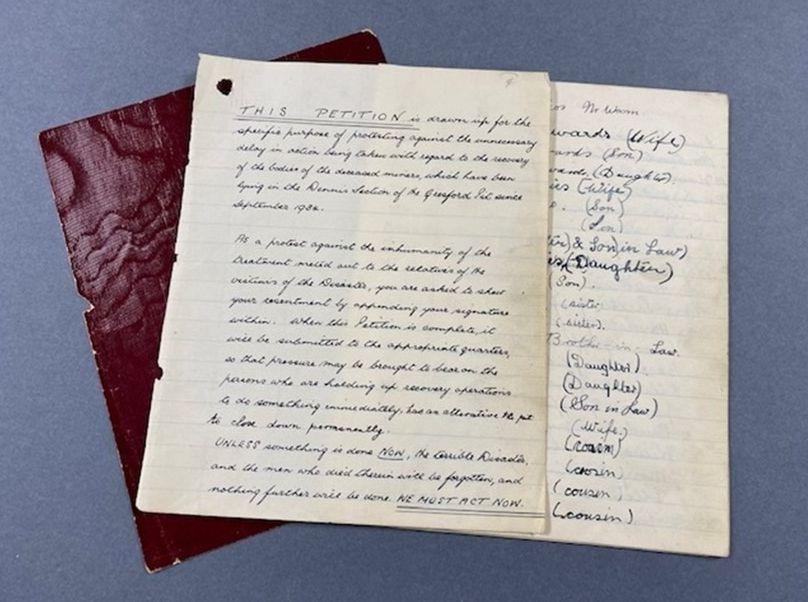 THIS PETITION is drawn up for the
specific purpose of protesting against the unnecessary
delay in action being taken with regard to the recovery
of the bodies of the deceased miners, which have been
lying in the Dennis Section of the Gresford Pit since
September 1934.
As a protest against the inhumanity of the
treatment meted out to the relatives of the
victims of the Disaster, you are asked to show
your resentment by appending your signature
within. When this Petition is complete, it
will be submitted to the appropriate quarters,
so that pressure may be brought to bear on the
persons who are holding up recovery operations
to do something immediately, has an alterative the pit
to close down permanently.
UNLESS something is done NOW, the terrible Disaster,
and the men who died therein will be forgotten, and
nothing further will be done. WE MUST ACT NOW.
wards (Wife)
ards (Son)
wards (Daughter).
ies (Wife)
(Son)
(Son)
ter) & Son in Law)
(Daughter)
(Son).
(sister
(sister).
Brother-in-Law.
(Daughter)
(Daughter)
(Son in Law)
(Wife.)
(cousin
(cousin)
(cousin)